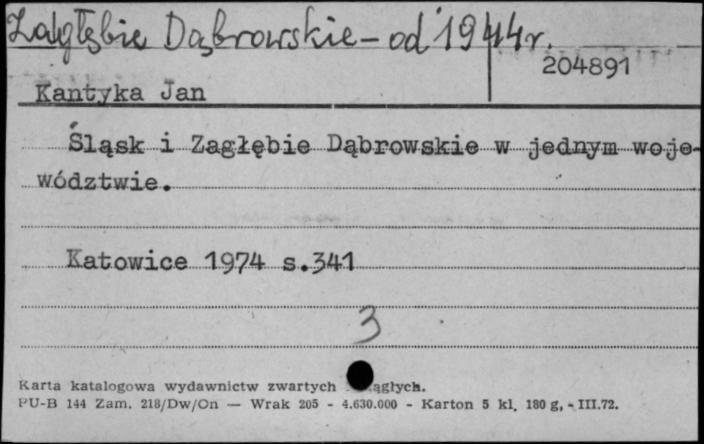 Zagłębie Dąbrowskie - od 1944 r.
204891
Kantyka Jan
Śląsk i Zagłębie Dąbrowskie w jednym woje-
wództwie.
Katowice 1974 s.341
3
Karta katalogowa wydawnictw zwartych
PU-B 144 Zam. 218/Dw/On — Wrak 205 - 4.630.000 - Karton 5 kl. 180 g, - III.72.